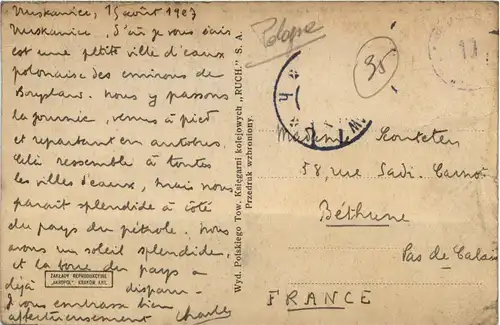 Truskawice, 15 août 1927
Truskawice, d'où je vous écris
est une petite ville d'eaux
polonaise des environs de
Boryslaw. Nous y passons
la journée, venus à pied
et repartant en autobus.
Cela ressemble à toutes
les villes d'eaux, mais nous
paraît splendide à côté
du pays du pétrole. Nous
avons un soleil splendide,
et la boue du pays a
déjà disparu.
Je vous embrasse bien
affectueusement Charles
ZAKŁADY REPRODUKCYJNE
"AKROPOL" KRAKÓW
Wyd. Polskiego Tow. Księgarni kolejowych „RUCH." S. A.
Przedruk wzbroniony.
Pologne
35
Madame
58, rue Sadi-Carnot
Béthune
Pas de Calais
FRANCE